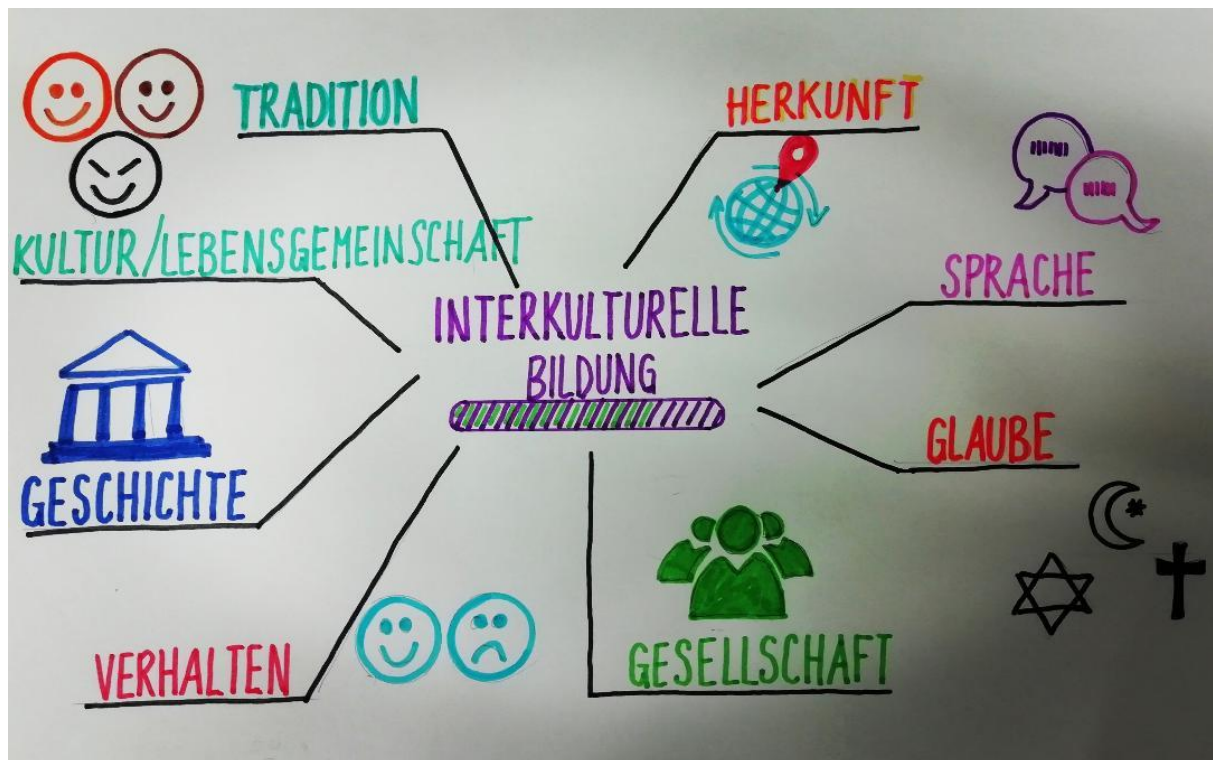 TRADITION
HERKUNFT
KULTUR/LEBENSGEMEINSCHAFT
SPRACHE
INTERKULTURELLE
BILDUNG
GLAUBE
GESCHICHTE
VERHALTEN
GESELLSCHAFT